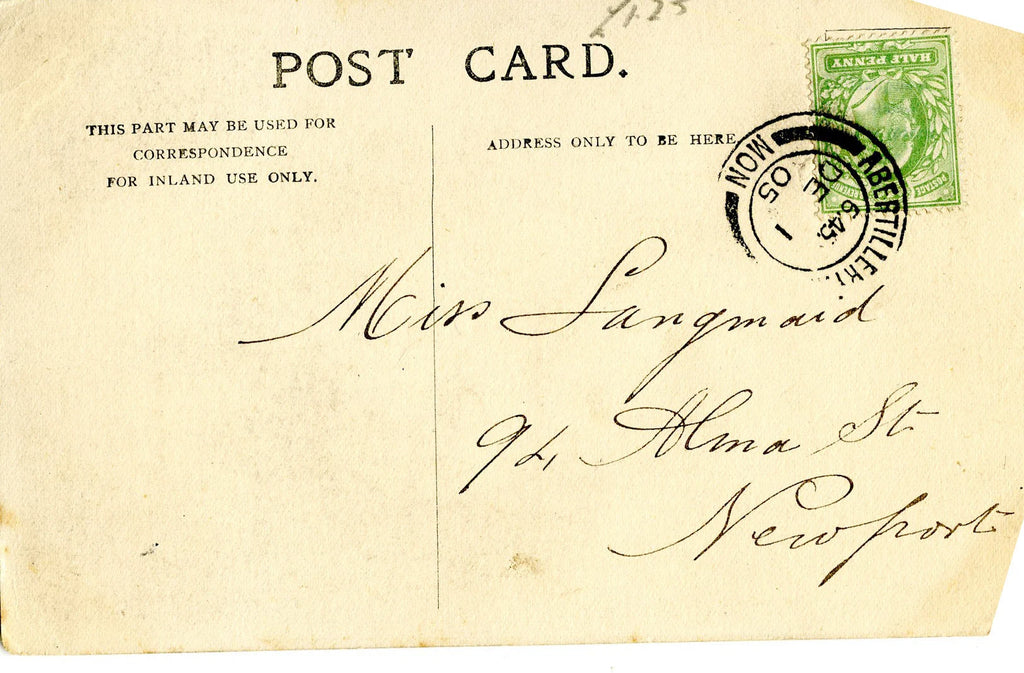 £1.25
POST CARD.
THIS PART MAY BE USED FOR
CORRESPONDENCE
FOR INLAND USE ONLY.
ADDRESS ONLY TO BE HERE
HALF PENNY
POSTAGE REVENUE
ABERTILLERY
MON
6.45
DE 1
05
Miss Langmaid
94, Alma St.
Newport